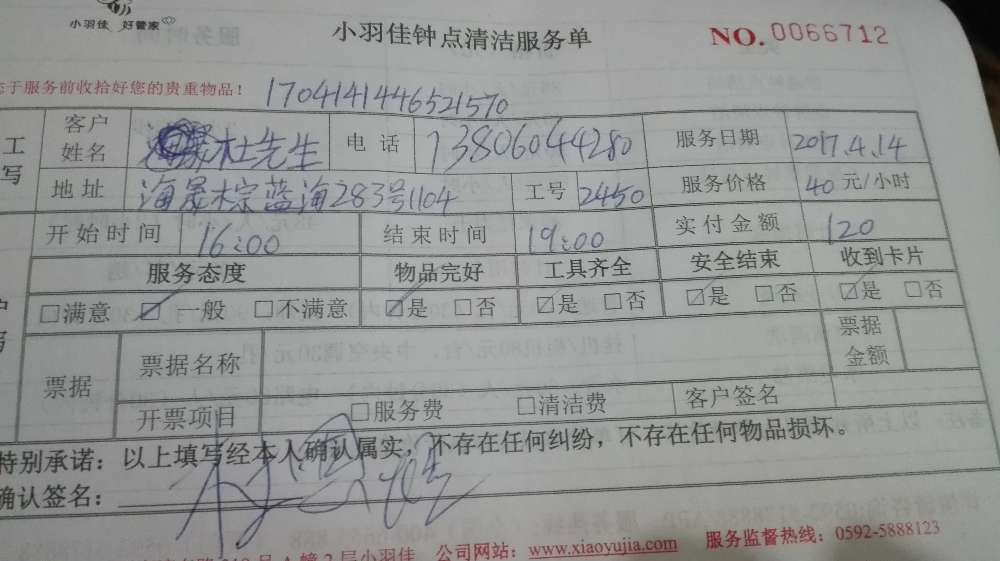 小羽佳 好管家
小羽佳钟点清洁服务单
NO. 0066712
于服务前收拾好您的贵重物品！
1704141446521570
客户姓名 杜先生 电话 13806044280 服务日期 2017.4.14
地址 海晟棕蓝海283号1104 工号 2450 服务价格 40 元/小时
开始时间 16:00 结束时间 19:00 实付金额 120
服务态度 物品完好 工具齐全 安全结束 收到卡片
□满意 ☑一般 □不满意 ☑是 □否 ☑是 □否 ☑是 □否 ☑是 □否
票据 票据名称 票据金额
开票项目 □服务费 □清洁费 客户签名
特别承诺：以上填写经本人确认属实，不存在任何纠纷，不存在任何物品损坏。
确认签名：
2层小羽佳 公司网站：www.xiaoyujia.com 服务监督热线：0592-5888123